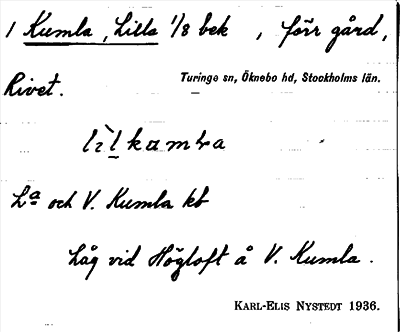 1 Kumla, Lilla 1/8 bek , förr gård,
Turinge sn, Öknebo hd, Stockholms län.
Rivet.
lìlkamba
La och V. Kumla kb
Låg vid Högloft å V. Kumla.
KARL-ELIS NYSTEDT 1936.